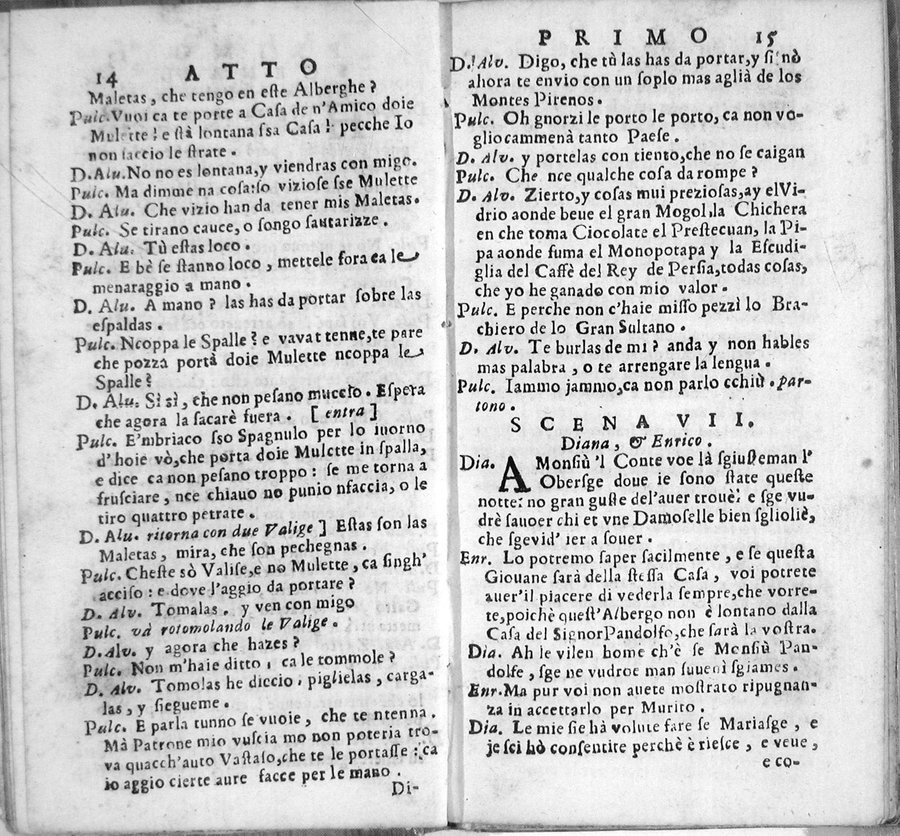 14 ATTO
Maletas, che tengo en eſte Alberghe?
Pulc. Vuoi ca te porte a Caſa de n'Amico doie
Mulette! e ſtà lontana ſsa Caſa! pecche Io
non ſaccio le ſtrate.
D. Alu. No no es lontana, y viendras con migo.
Pulc. Ma dimme na coſa: ſo vizioſe ſse Mulette
D. Alu. Che vizio han da tener mis Maletas.
Pulc. Se tirano cauce, o ſongo ſautarizze.
D. Alu. Tù eſtas loco.
Pulc. E bè ſe ſtanno loco, mettele fora ca le
menaraggio a mano.
D. Alu. A mano? las has da portar ſobre las
eſpaldas.
Pulc. Ncoppa le Spalle? e vavattenne, te pare
che pozza portà doie Mulette ncoppa le
Spalle?
D. Alu. Sì sì, che non peſano muceſo. Eſpera
che agora la ſacarè fuera. [entra]
Pulc. E'mbriaco ſso Spagnulo per lo iuorno
d'hoie vò, che porta doie Mulette in ſpalla,
e dice ca non peſano troppo: ſe me torna a
fruſciare, nce chiauo no punio nfaccia, o le
tiro quattro petrate.
D. Alu. ritorna con due Valige] Eſtas ſon las
Maletas, mira, che ſon pechegnas.
Pulc. Cheſte sò Valiſe, e no Mulette, ca ſingh'
acciſo: e dove l'aggio da portare?
D. Alv. Tomalas. y ven con migo
Pulc. và rotomolando le Valige.
D. Alv. y agora che hazes?
Pulc. Non m'haie ditto, ca le tommole?
D. Alv. Tomolas he diccio, piglielas, carga-
las, y ſiegueme.
Pulc. E parla tunno ſe vuoie, che te ntenna.
Mà Patrone mio vuſcia mo non poteria tro-
va quacch'auto Vaſtaſo, che te le portaſſe: ca
io aggio cierte aure facce per le mano.
Di-
PRIMO 15
D. Alv. Digo, che tù las has da portar, y ſi nò
ahora te envio con un ſoplo mas aglià de los
Montes Pirenos.
Pulc. Oh gnorzi le porto le porto, ca non vo-
glio cammenà tanto Paeſe.
D. Alv. y portelas con tiento, che no ſe caigan
Pulc. Che nce qualche coſa da rompe?
D. Alv. Zierto, y coſas mui prezioſas, ay el Vi-
drio aonde beue el gran Mogol, la Chichera
en che toma Ciocolate el Preſtecuan, la Pi-
pa aonde fuma el Monopotapa y la Eſcudi-
glia del Caffè del Rey de Perſia, todas coſas,
che yo he ganado con mio valor.
Pulc. E perche non c'haie miſſo pezzì lo Bra-
chiero de lo Gran Sultano.
D. Alv. Te burlas de mi? anda y non hables
mas palabra, o te arrengare la lengua.
Pulc. Iammo jammo, ca non parlo cchiù. par-
tono.
SCENA VII.
Diana, & Enrico.
Dia. A Monſiù 'l Conte voe là sgiuſteman l'
Oberſge doue ie ſono ſtate queſte
notte: no gran guſte del'auer trouè: e ſge vu-
drè ſauoer chi et vne Damoſelle bien ſgliolìè,
che ſgevid' ier a ſouer.
Enr. Lo potremo ſaper facilmente, e ſe queſta
Giouane ſarà della ſteſſa Caſa, voi potrete
auer'il piacere di vederla ſempre, che vorre-
te, poichè queſt'Albergo non è lontano dalla
Caſa del Signor Pandolfo, che ſarà la voſtra.
Dia. Ah le vilen home ch'è ſe Monſiù Pan-
dolfe, ſge ne vudroe man ſuueni ſgiames.
Enr. Ma pur voi non auete moſtrato ripugnan-
za in accettarlo per Murito.
Dia. Le mie ſie hà volute fare ſe Mariaſge, e
je ſci hò conſentire perchè è rieſce, e veue,
e co-